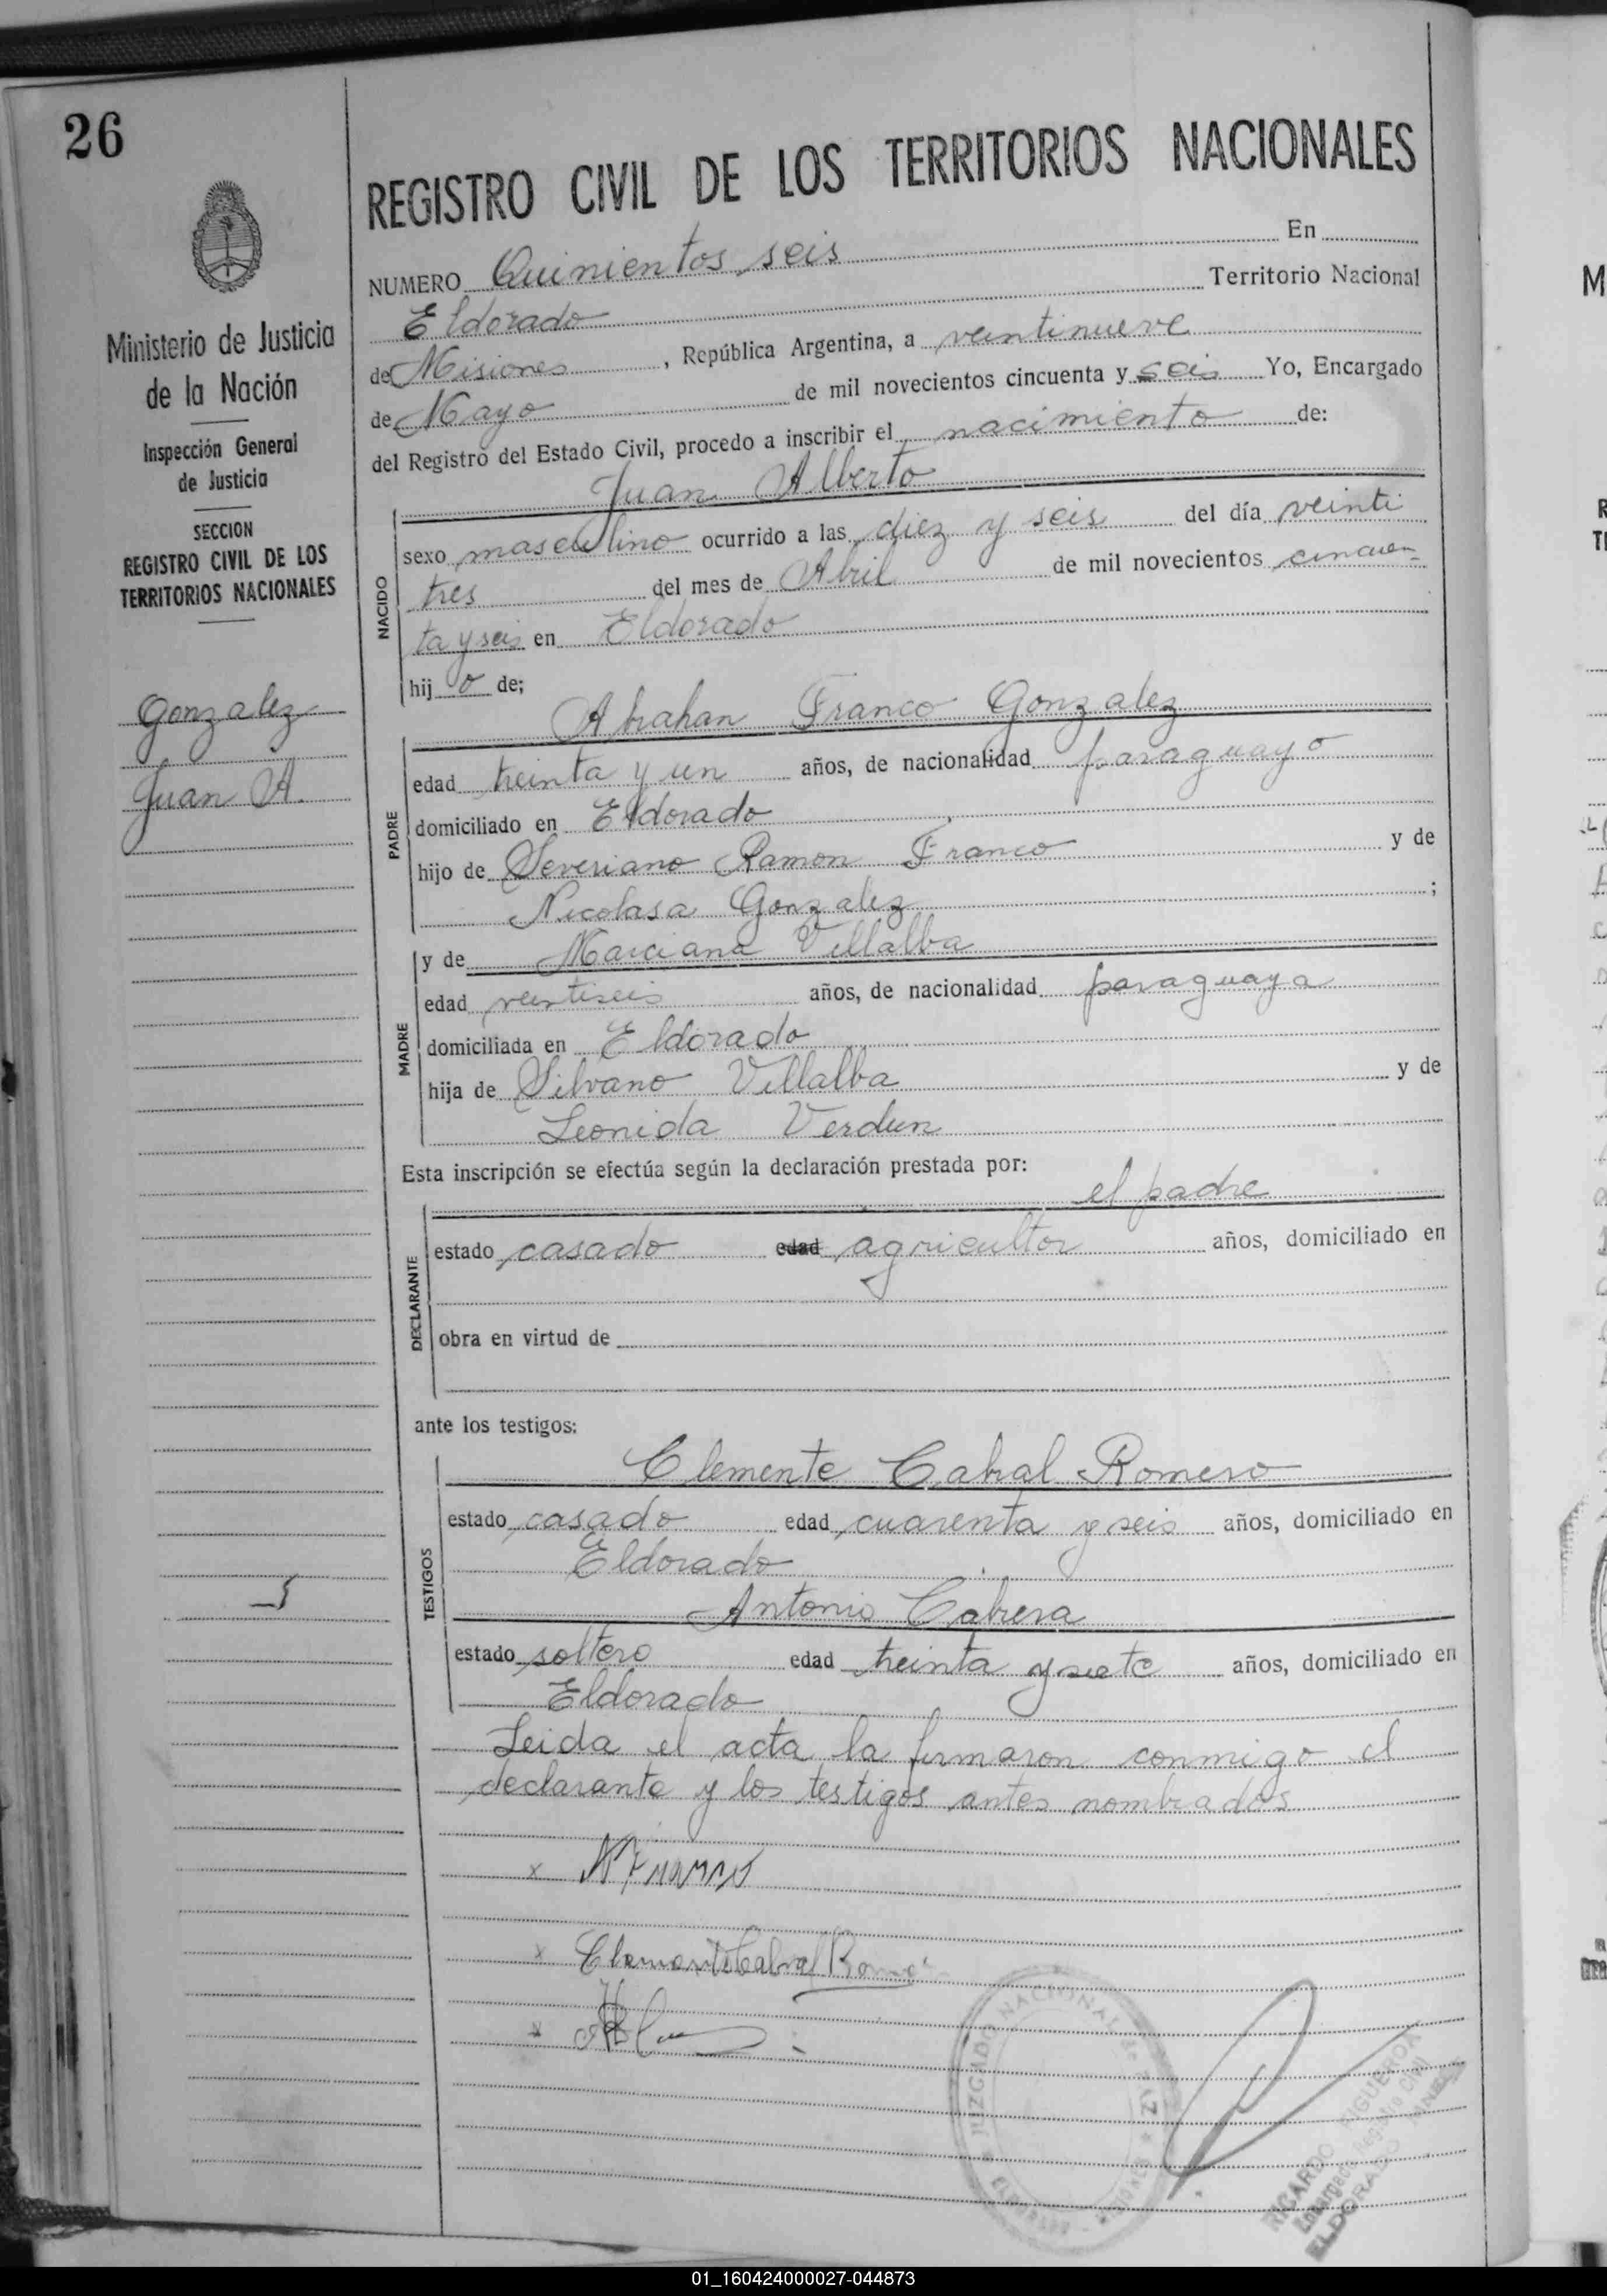 26
Ministerio de Justicia
de la Nación
Inspección General
de Justicia
SECCION
REGISTRO CIVIL DE LOS
TERRITORIOS NACIONALES
Gonzalez
Juan A.
REGISTRO CIVIL DE LOS TERRITORIOS NACIONALES
NUMERO Quinientos seis En
Eldorado Territorio Nacional
de Misiones, República Argentina, a veintinueve
de Mayo de mil novecientos cincuenta y seis Yo, Encargado
del Registro del Estado Civil, procedo a inscribir el nacimiento de:
Juan Alberto
NACIDO
sexo masculino ocurrido a las diez y seis del día veinti
tres del mes de Abril de mil novecientos cincuen-
ta y seis en Eldorado
hijo de;
Abrahan Franco Gonzalez
PADRE
edad treinta y un años, de nacionalidad paraguayo
domiciliado en Eldorado
hijo de Severiano Ramon Franco y de
Nicolasa Gonzalez ;
y de Marciana Villalba
MADRE
edad veintiseis años, de nacionalidad paraguaya
domiciliada en Eldorado
hija de Silvano Villalba y de
Leonida Verdun
Esta inscripción se efectúa según la declaración prestada por:
el padre
DECLARANTE
estado casado edad agricultor años, domiciliado en
obra en virtud de
ante los testigos:
Clemente Cabral Romero
TESTIGOS
estado casado edad cuarenta y seis años, domiciliado en
Eldorado
Antonio Cabrera
estado soltero edad treinta y siete años, domiciliado en
Eldorado
Leida el acta la firmaron conmigo el
declarante y los testigos antes nombrados
x
x Clemente Cabral Rome
x
JUZGADO NACIONAL de PAZ
ELDORADO - MISIONES
RICARDO FIGUEROA
Encargado Registro Civil
ELDORADO
01_160424000027-044873